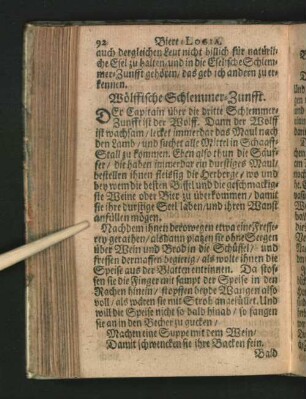 92 Biere-LOGIA.
auch dergleichen Leut nicht billich für natürli-
che Esel zu halten/und in die Eselische Schlem-
mer-Zunfft gehören/ das geb ich andern zu er-
kennen.
Wölffische Schlemmer-Zunfft.
DEr Capitain über die dritte Schlemmer-
Zunfft ist der Wolff. Dann der Wolff
ist wachsam/ lecket immerdar das Maul nach
den Lamb/ und suchet alle Mittel in Schaaff-
Stall zu kommen. Eben also thun die Säuf-
fer/ die haben immerdar ein durstiges Maul/
bestellen ihnen fleissig die Herberge/ wo und
bey wem die besten Bißel und die geschmackig-
ste Weine oder Bier zu überkommen/ damit
sie ihre durstige Seel laben/ und ihren Wanst
anfüllen mögen.
Nachdem ihnen derowegen etwa eine Fresse-
rey gerathen/ alsdann platzen sie ohne Sorgen
über Wein und Brod in die Schüssel/ und
fressen dermassen begierig/ als wolte ihnen die
Speise aus der Blatten entrinnen. Da stos-
sen sie die Finger mit sampt der Speise in den
Rachen hinein/ stopffen beyde Wangen also
voll/ als wären sie mit Stroh angefüllet. Und
will die Speise nicht so bald hinab/ so fangen
sie an in den Becher zu gucken/
Machen eine Suppe mit dem Wein/
Damit schwencken sie ihre Backen fein.
Bald